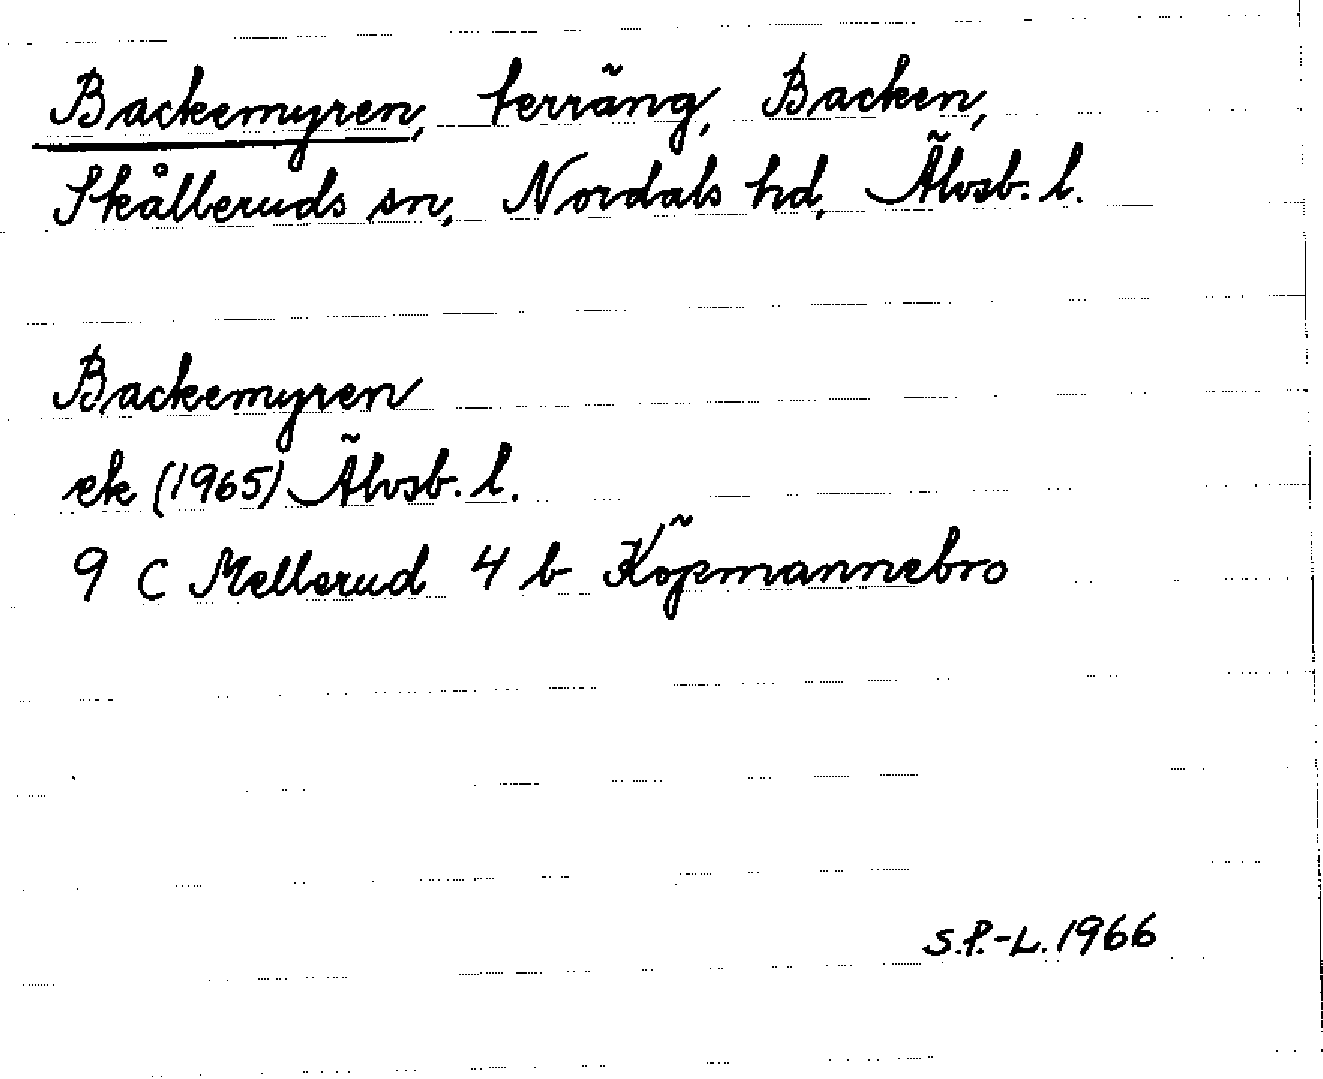 Backemyren, terräng, Backen,
Skålleruds sn, Nordals hd, Älvsb. l.
Backemyren
ek (1965) Älvsb. l.
9 C Mellerud 4 b Köpmannebro
S.P.-L. 1966